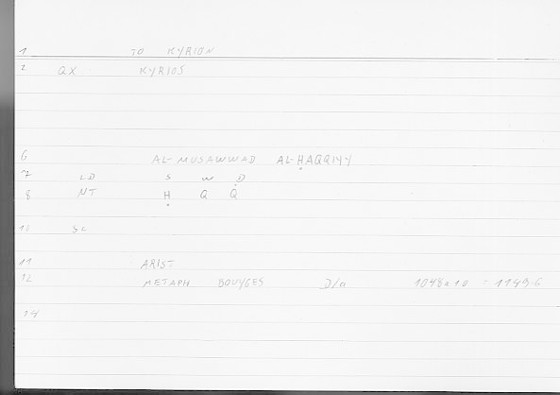 1 TO KYRION
2 QX KYRIOS
6 AL-MUSAWWAD AL-ḤAQQIYY
7 S W D
8 NT Ḥ Q Q
10 SC
11 ARIST
12 METAPH BOUYGES 1048a10 1149.6
14